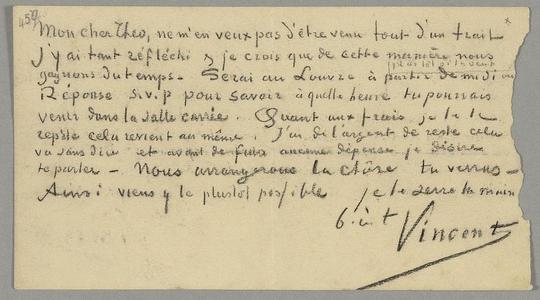 Mon cher Theo, ne m'en veux pas d'être venu tout d'un trait
J'y ai tant réfléchi & je crois que de cette manière nous
gagnons du temps. Serai au Louvre à partir de midi ou
plus tôt si tu veux
Réponse s.v.p pour savoir à quelle heure tu pourrais
venir dans la salle carrée. Quant aux frais je te le
repète cela revient au même. J'ai de l'argent de reste cela
va sans dire et avant de faire aucune dépense je désire
te parler – Nous arrangerons la chôse tu verras –
Ainsi viens y le plustot possible je te serre la main
b. à t
Vincent